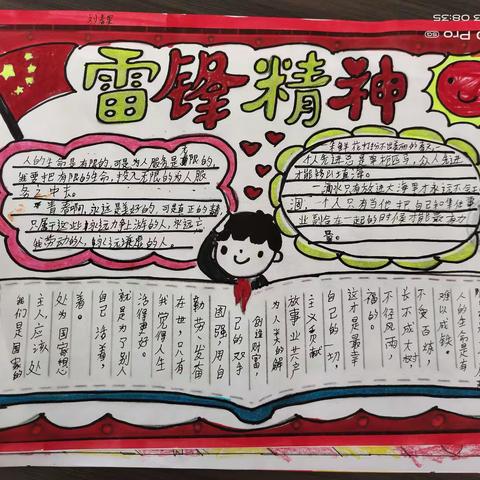 08:35
Pro
雷锋精神
人的生命是有限的,可是为人服务是无限的,
我要把有限的生命,投入无限的为人服
务之中去。
青春啊,永远是美好的,可是真正的青春,
只属于这些永远力争上游的人,永远忘
我劳动的人,永远谦虚的人。
朵鲜花打扮不出美丽的春天,一
个人先进总是单枪匹马,众人先进
才能移山填海。
一滴水只有放进大海里才永远不会干
涸,一个人只有当他把自己和集体事
业融合在一起的时候才能最有力
量。
我们是国家的
主人,应该处
处为国家想
着。
自己活着,
就是为了别人
活得更好。
我觉得人生
在世,只有
勤劳、发奋
图强,用自
己的双手
创造财富
为人类的解
放事业共产
主义贡献
自己的一切,
这才是最幸
福的。
不经风雨,
长不成大树
不受百炼,
难以成钢。
人的生命是有